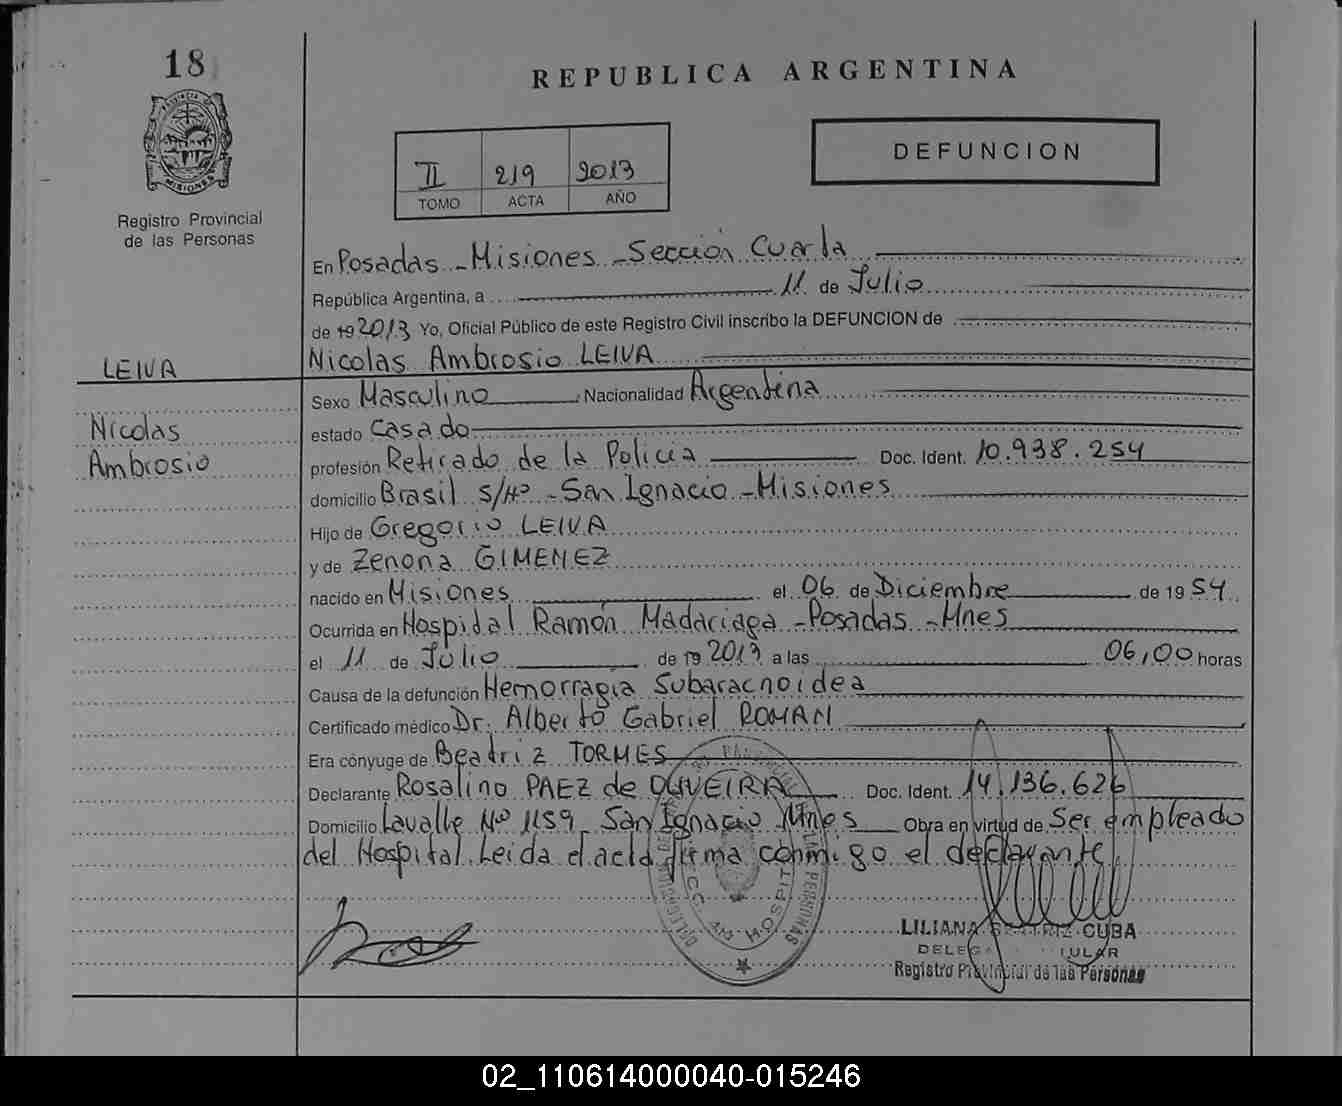 18
REPUBLICA ARGENTINA
MISIONES
Registro Provincial
de las Personas
II 219 2013
TOMO ACTA AÑO
DEFUNCION
En Posadas - Misiones - Sección Cuarta
República Argentina, a 11 de Julio
de 19 2013 Yo, Oficial Público de este Registro Civil inscribo la DEFUNCION de
LEIVA
Nicolas Ambrosio LEIVA
Sexo Masculino Nacionalidad Argentina
Nicolas
estado Casado
Ambrosio
profesión Retirado de la Policia Doc. Ident. 10.938.254
domicilio Brasil S/Nº - San Ignacio - Misiones
Hijo de Gregorio LEIVA
y de Zenona GIMENEZ
nacido en Misiones el 06 de Diciembre de 1954
Ocurrida en Hospital Ramón Madariaga - Posadas - Mnes
el 11 de Julio de 19 2013 a las 06,00 horas
Causa de la defunción Hemorragia Subaracnoidea
Certificado médico Dr. Alberto Gabriel ROMAN
Era cónyuge de Beatriz TORMES
Declarante Rosalino PAEZ de OLIVEIRA Doc. Ident. 14.136.626
Domicilio Lavalle Nº 1159 San Ignacio Mnes Obra en virtud de Ser empleado
del Hospital. Leida el acta firma conmigo el declarante.
LILIANA BEATRIZ CUBA
DELEGADA TITULAR
Registro Provincial de las Personas
02_110614000040-015246